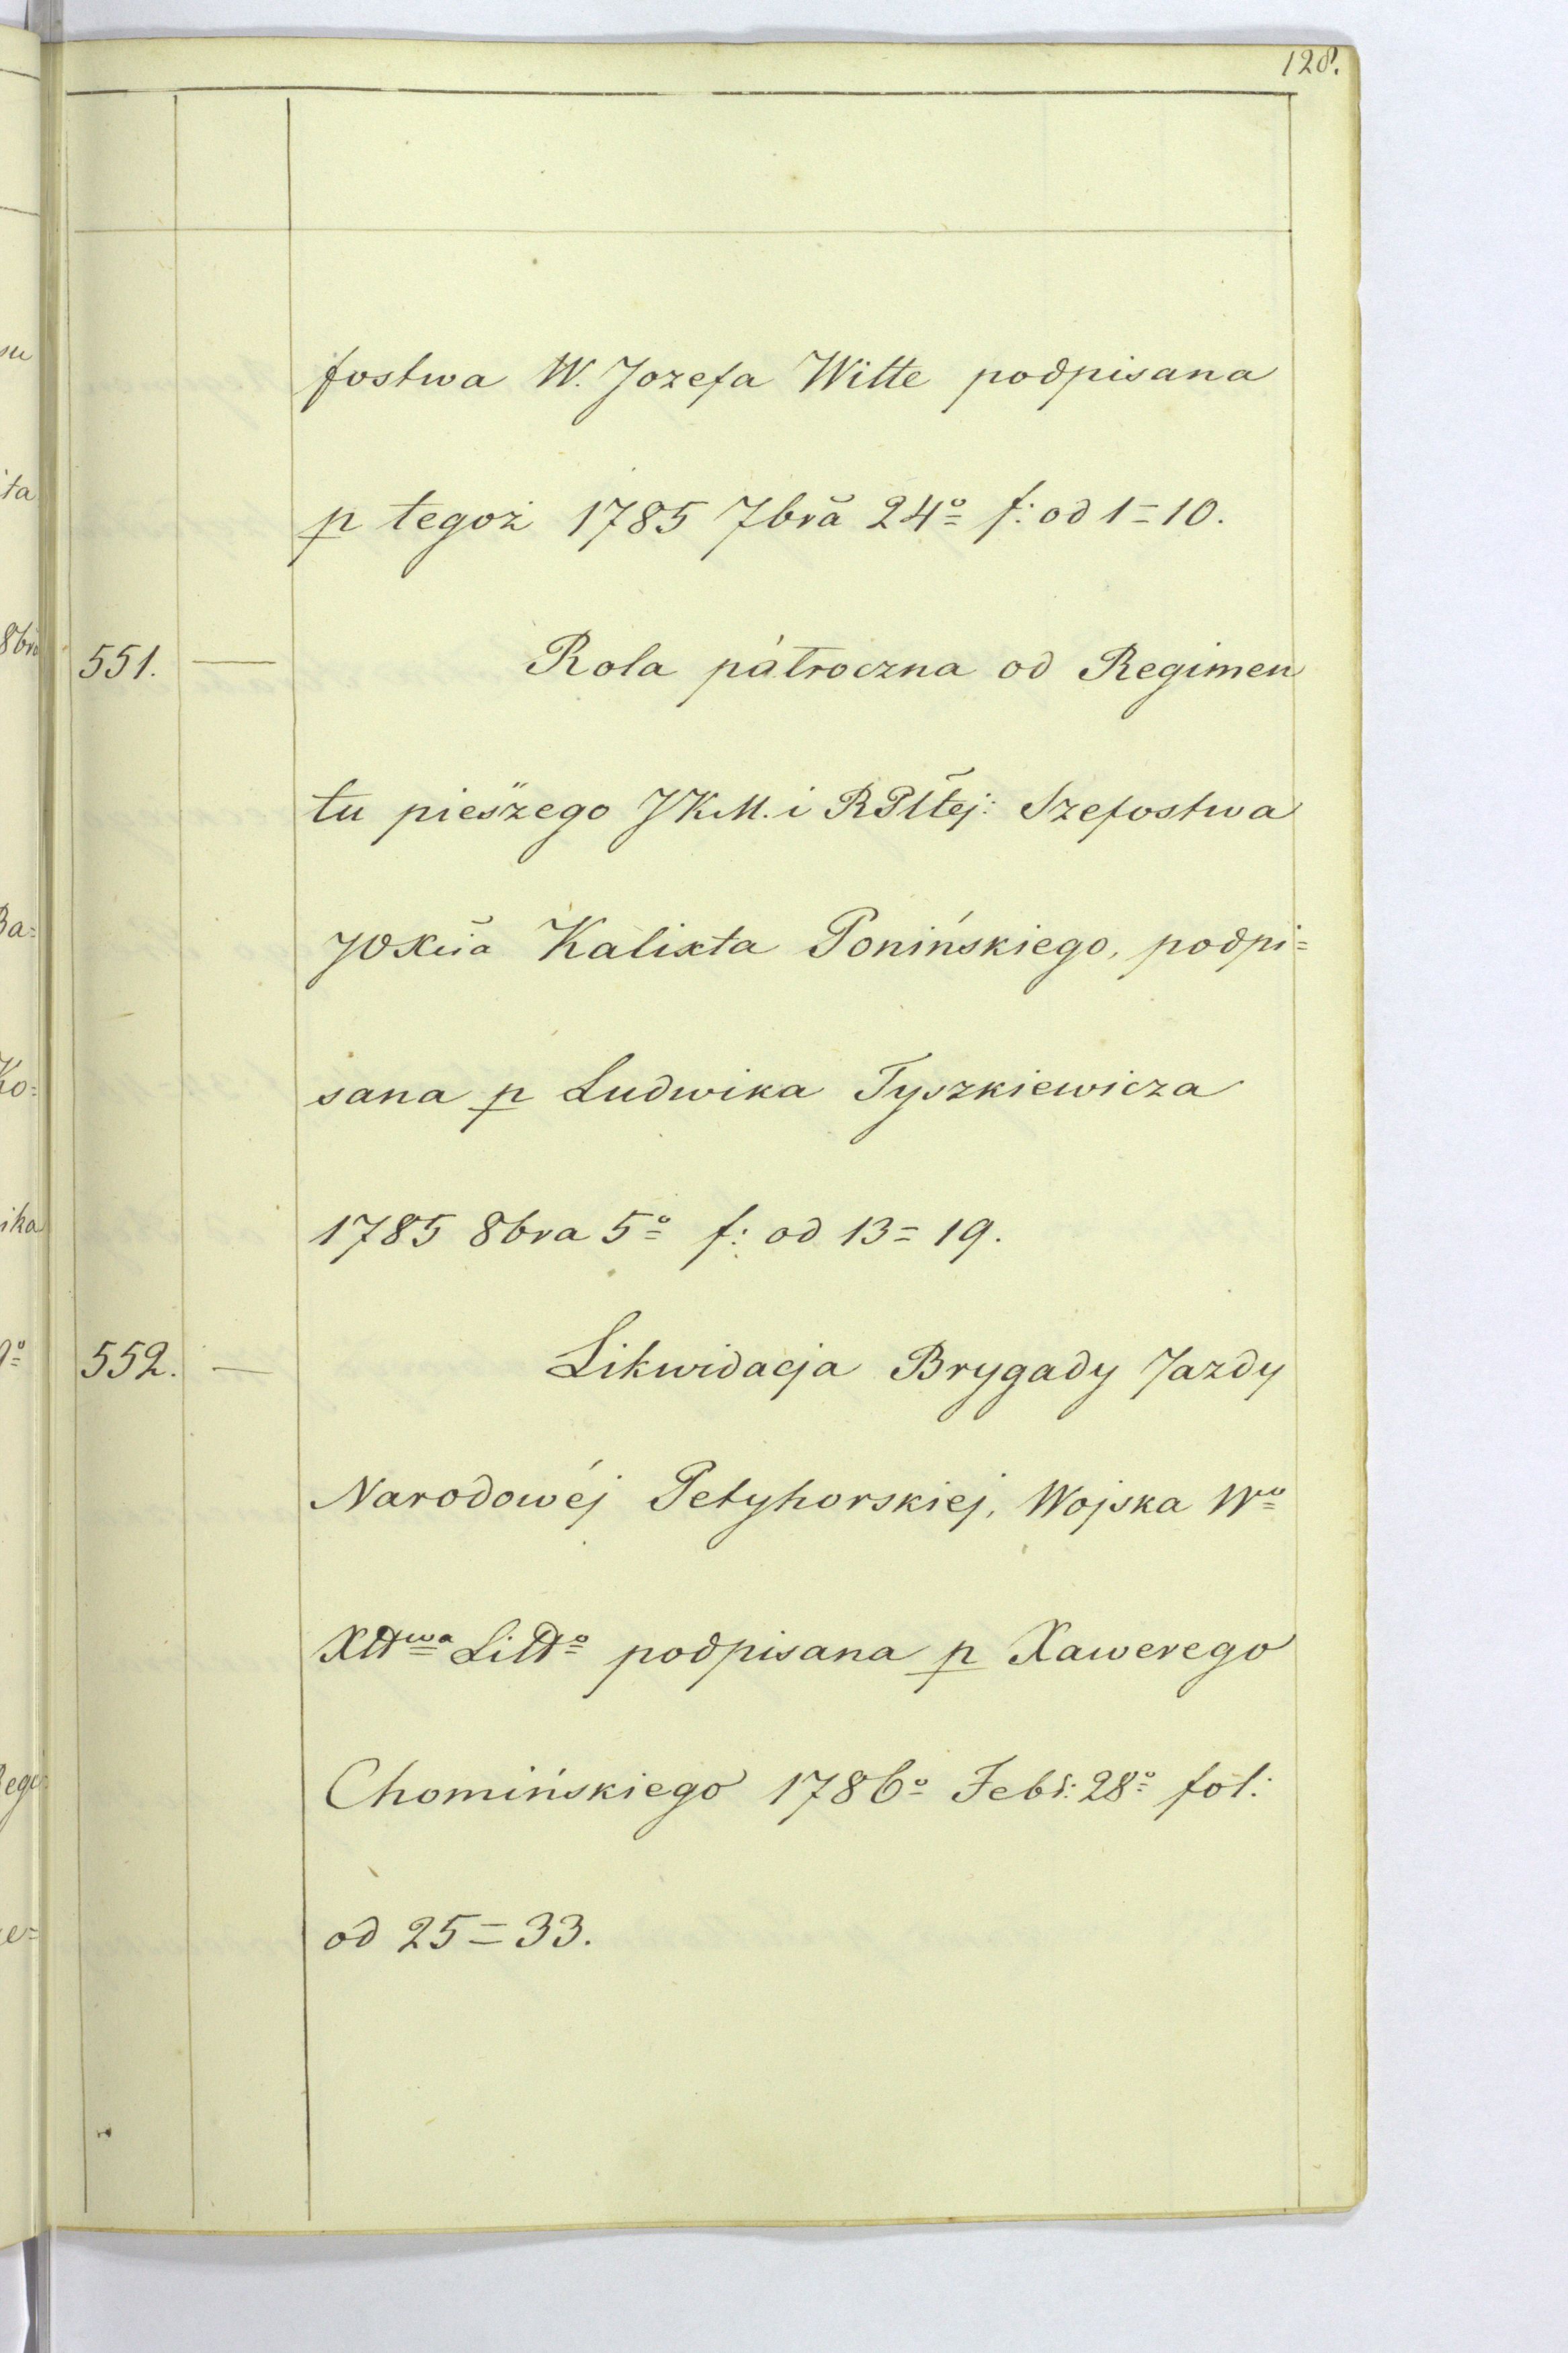 128.
fostwa W. Jozefa Witte podpisana
p tegoż 1785 7bra 24º f: od 1=10.
551. — Rola pátroczna od Regimen
tu pieszego JKM. i RPltej: Szefostwa
JOXcia Kalixta Ponińskiego, podpi=
sana p Ludwika Tyszkiewicza
1785 8bra 5º f: od 13=19.
552. — Likwidacja Brygady Jazdy
Narodowéj Petyhorskiej, Wojska Wº
Xttwa Littº podpisana p Xawerego
Chomińskiego 1786º Febr: 28º fol:
od 25=33.